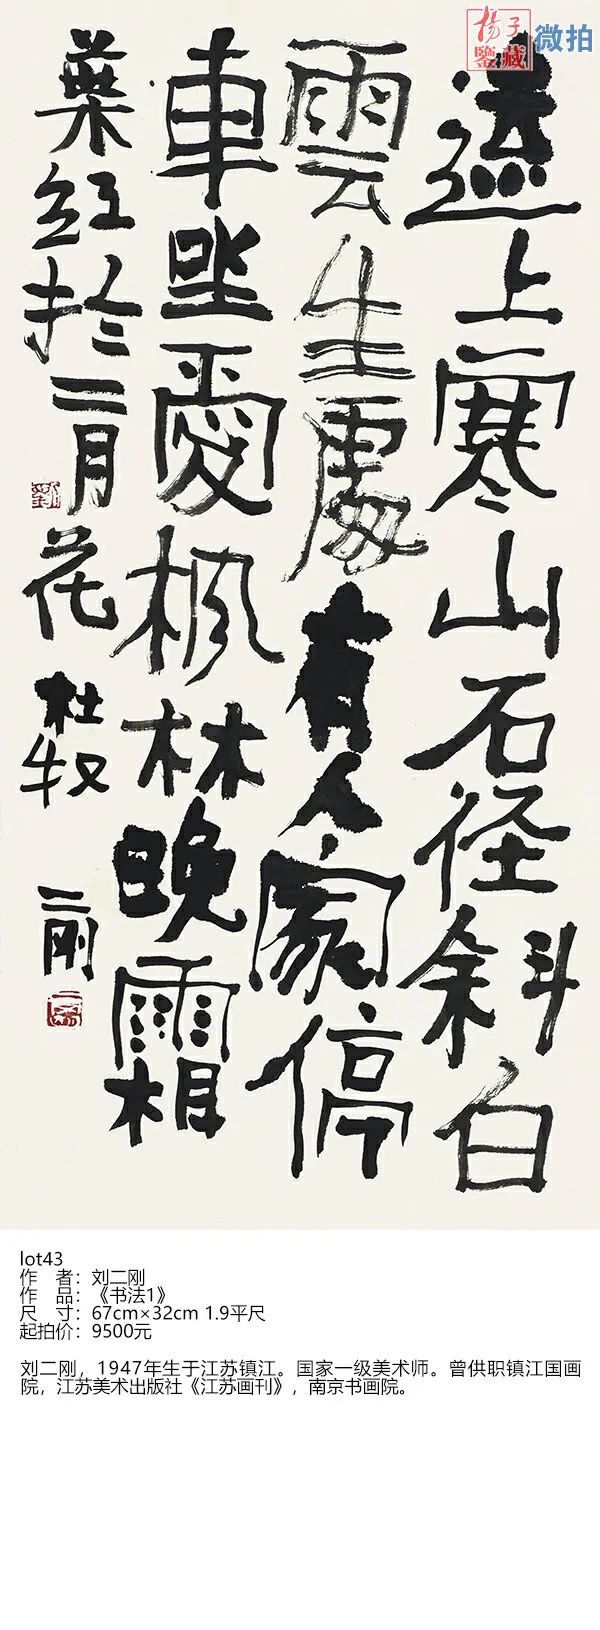 揚子
鑒藏
微拍
遠上寒山石径斜白
雲生處有人家停
車坐愛枫林晚霜
葉红扵二月花 杜牧 二刚
lot43
作 者：刘二刚
作 品：《书法1》
尺 寸：67cm×32cm 1.9平尺
起拍价：9500元
刘二刚，1947年生于江苏镇江。国家一级美术师。曾供职镇江国画
院，江苏美术出版社《江苏画刊》，南京书画院。